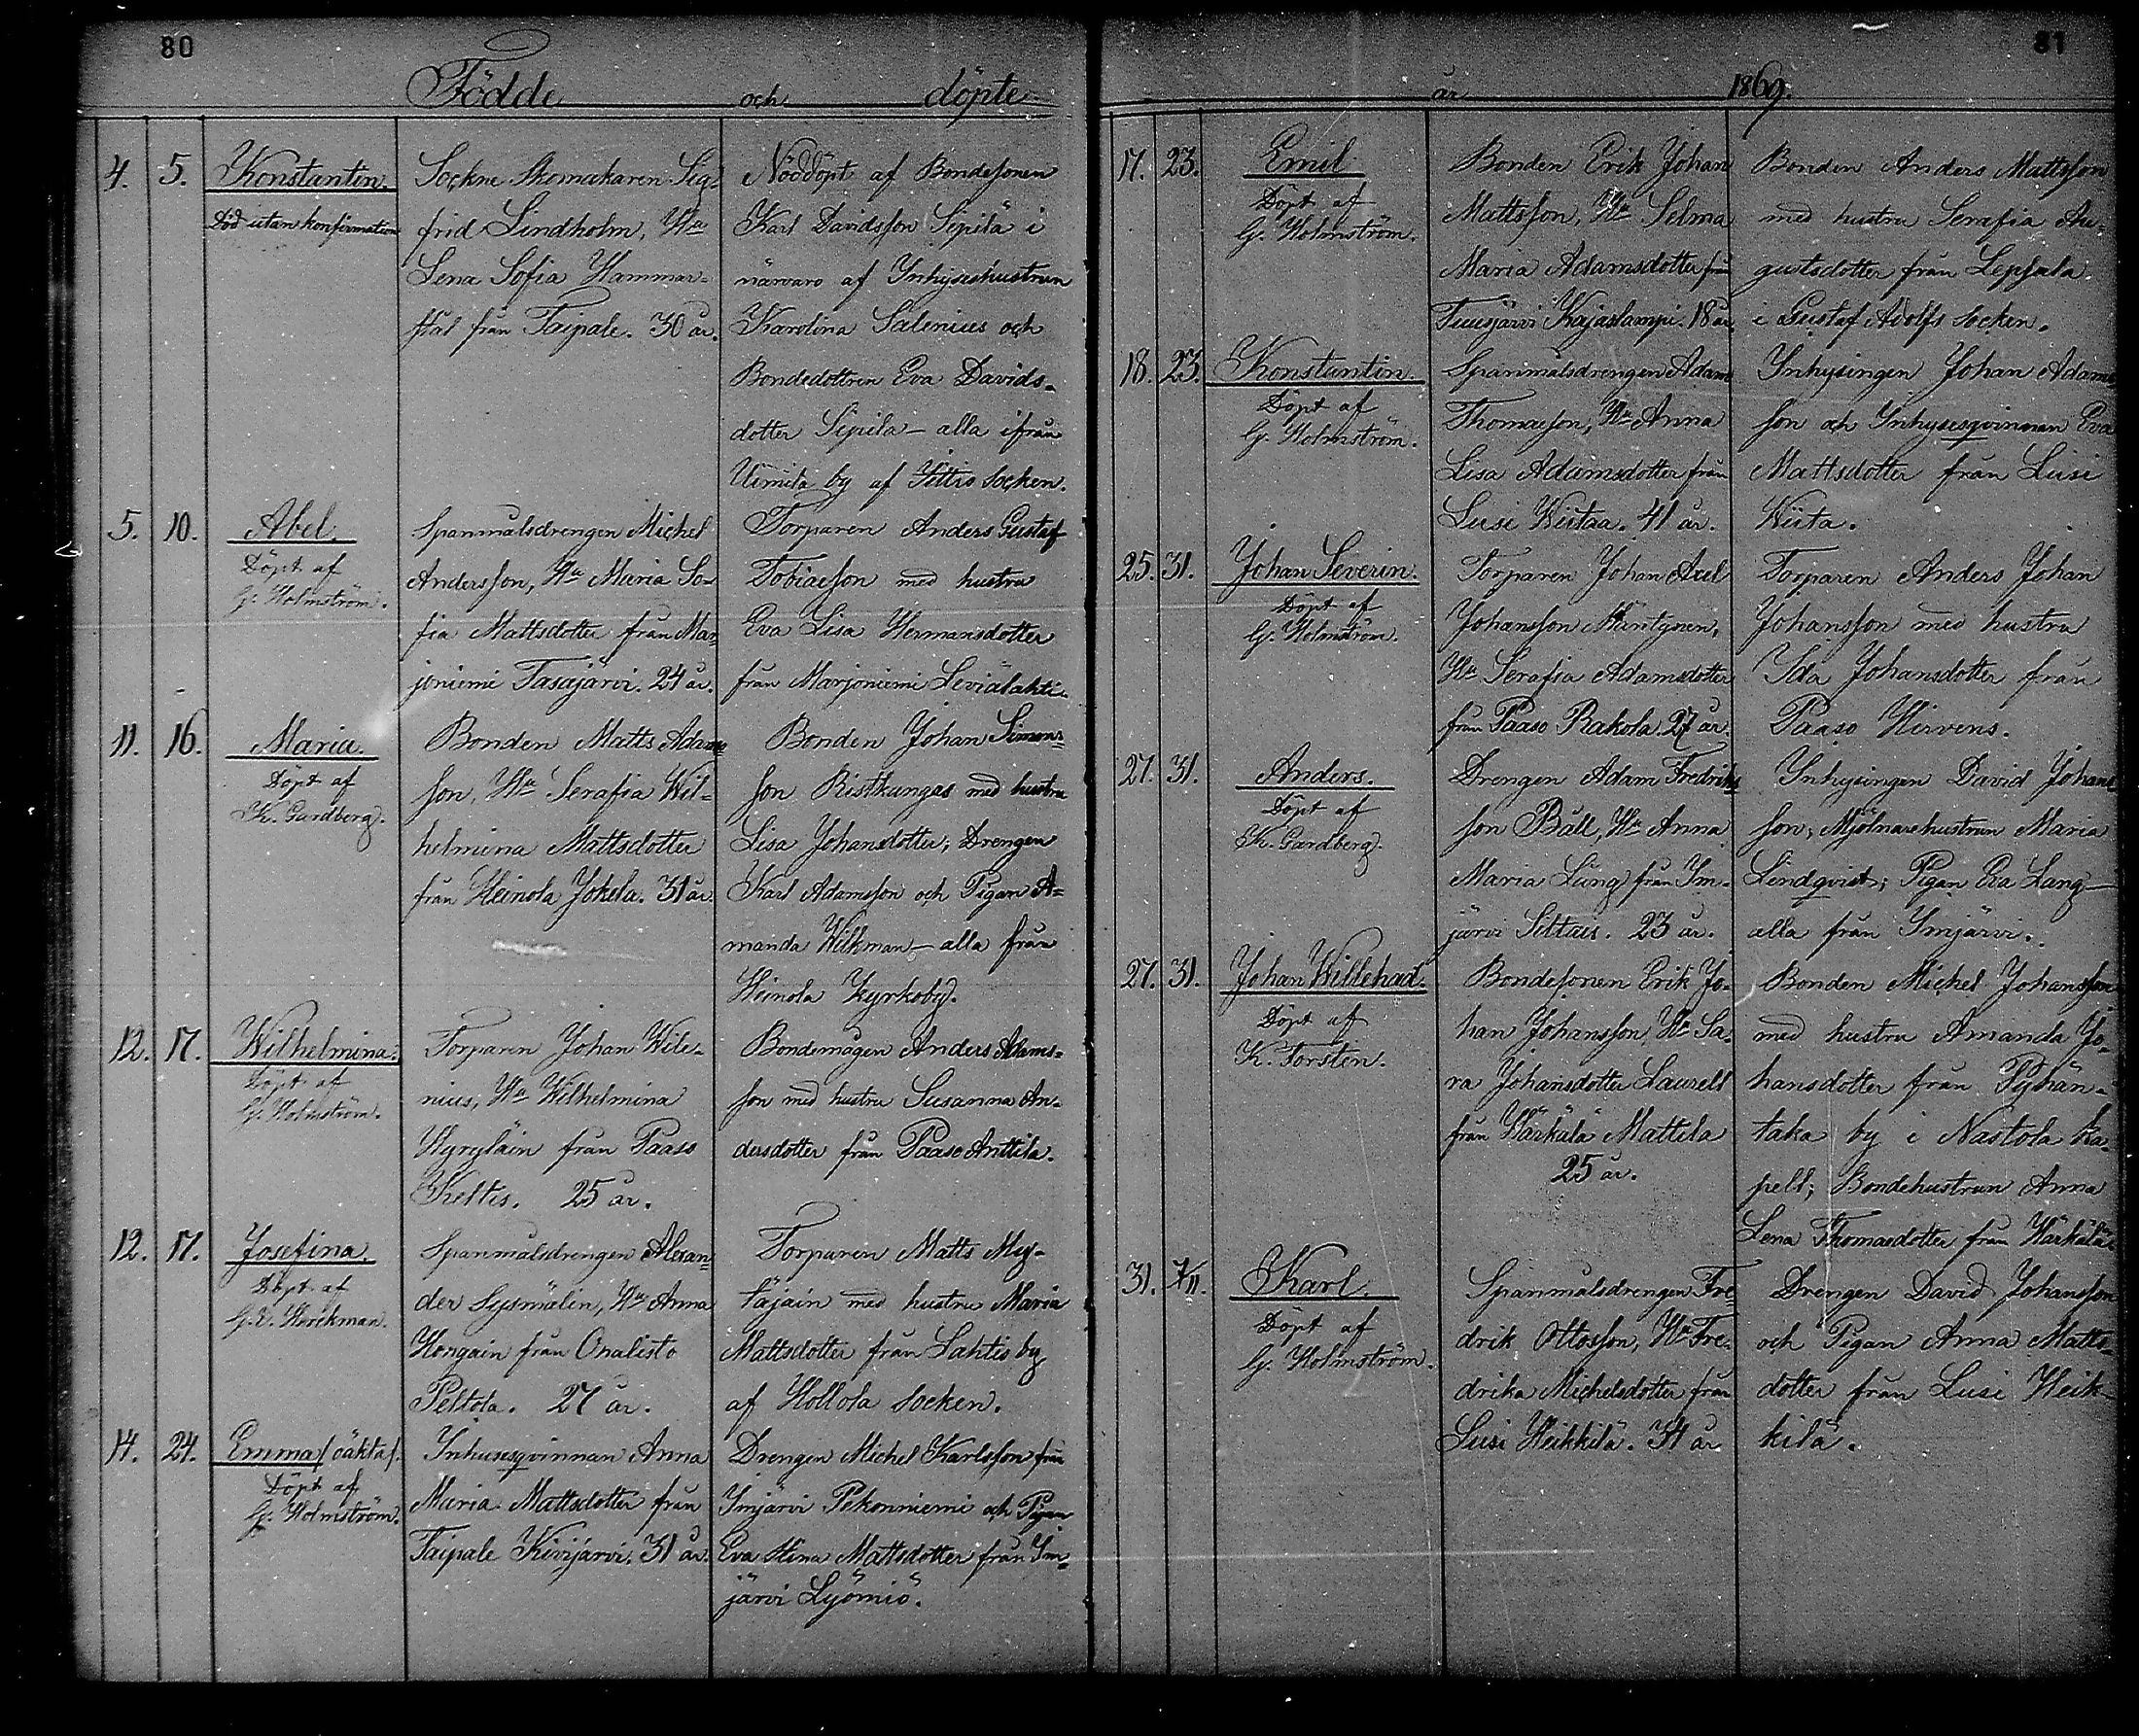 80
Födde och döpte
4. 5. Konstantin.
Död utan konfirmation
Sockne Skomakaren Sig-
frid Lindholm, Hu
Lena Sofia Hammar-
stål från Taipale. 30 år.
Nöddöpt af Bondesonen
Karl Davidsson Sipilä i
närvaro af Inhyseshustrun
Karolina Salenius och
Bondedottren Eva Davids-
dotter Sipila – alla ifrån
Uimila by af Ittis Socken.
5. 10. Abel.
Döpt af
G. Holmström.
Spanmålsdrengen Michel
Andersson, Hu Maria So-
fia Mattsdotter från Mar-
joniemi Tasajärvi. 24 år.
Torparen Anders Gustaf
Tobiasson med hustru
Eva Lisa Hermansdotter
från Marjoniemi Leviälahti.
11. 16. Maria.
Döpt af
K. Gardberg.
Bonden Matts Adams-
son, Hu Serafia Wil-
helmina Mattsdotter
från Heinola Jokela. 31 år.
Bonden Johan Simons-
son Ristkungas med hustru
Lisa Johansdotter; Drengen
Karl Adamsson och Pigan A-
manda Wilkman – alla från
Heinola Kyrkoby.
12. 17. Wilhelmina.
Döpt af
G. Holmström.
Torparen Johan Wile-
nius, Hu Wilhelmina
Hyryläin från Paaso
Keltis. 25 år.
Bondemågen Anders Adams-
son med hustru Susanna An-
dersdotter från Paaso Anttila.
12. 17. Josefina.
Döpt af
G. E. Horckman.
Spanmålsdrengen Alexan-
der Sysmälin, Hu Anna
Hongain från Onalisto
Peltola. 27 år.
Torparen Matts My-
täjäin med hustru Maria
Mattsdotter från Lahtis by
af Hollola socken.
14. 24. Emma /oäkta/.
Döpt af
G. Holmström.
Inhusesqvinnan Anna
Maria Mattsdotter från
Taipale Kivijärvi. 31 år.
Drengen Michel Karlsson från
Imjärvi Pekonniemi och Pigan
Eva Stina Mattsdotter från Im-
järvi Lyömiö.
81
år 1869.
17. 23. Emil.
Döpt af
G. Holmström.
Bonden Erik Johan
Mattsson, Hu Selma
Maria Adamsdotter från
Tuusjärvi Kajaslampi. 18 år.
Bonden Anders Mattsson
med hustru Serafia Au-
gustsdotter från Lepsala
i Gustaf Adolfs socken.
18. 23. Konstantin.
Döpt af
G. Holmström.
Spanmålsdrengen Adam
Thomasson, Hu Anna
Lisa Adamsdotter från
Lusi Wiitaa. 41 år.
Inhysingen Johan Adams-
son och Inhysesqvinnan Eva
Mattsdotter från Lusi
Wiita.
25. 31. Johan Severin.
Döpt af
G. Holmström.
Torparen Johan Axel
Johansson Mäntynen,
Hu Serafia Adamsdotter
från Paaso Rakola. 27 år.
Torparen Anders Johan
Johansson med hustru
Ida Johansdotter från
Paaso Hirvens.
27. 31. Anders.
Döpt af
K. Gardberg.
Drengen Adam Fredriks-
son Båll, Hu Anna
Maria Lång från Im-
järvi Siltais. 23 år.
Inhysingen David Johans-
son, Mjölnarehustrun Maria
Lindqvist; Pigan Eva Lang –
alla från Imjärvi.
27. 31. Johan Willehad.
Döpt af
K. Forstén.
Bondesonen Erik Jo-
han Johansson, Hu Sa-
ra Johansdotter Laurell
från Härkälä Mattila
25 år.
Bonden Michel Johansson
med hustru Amanda Jo-
hansdotter från Pyhän-
taka by i Nastola ka-
pell; Bondehustrun Anna
Lena Thomasdotter från Härkälä.
31. 7/II. Karl.
Döpt af
G. Holmström.
Spanmålsdrengen Fre-
drik Ottosson, Hu Fre-
drika Michelsdotter från
Lusi Heikkilä. 34 år.
Drengen David Johansson
och Pigan Anna Matts-
dotter från Lusi Heik-
kilä.